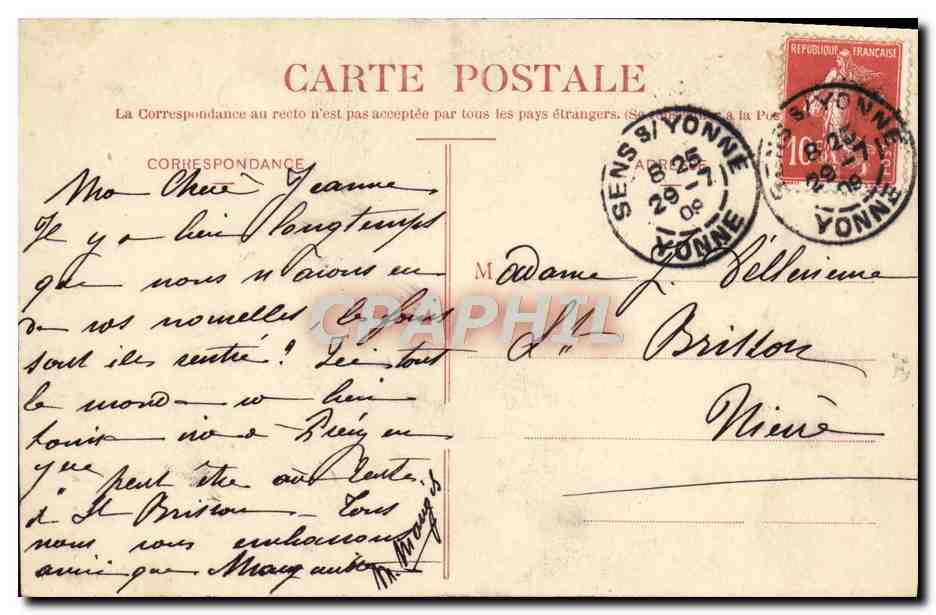 CARTE POSTALE
La Correspondance au recto n'est pas acceptée par tous les pays étrangers. (Se à la Pos
CORRESPONDANCE
ADRESSE
REPUBLIQUE FRANÇAISE
10
SENS S/ YONNE
8 25
29 - 7
09
YONNE
SENS S/ YONNE
8 25
29 - 7
09
YONNE
Ma Chere Jeanne
Il y a bien longtemps
que nous n'avons eu
de vos nouvelles, les
sont ils rentré? Ici tout
le monde va bien
va à en
peut être au
à St Brisson Tous
nous vous embrassons
ainsi que
Madame J.
St Brisson
Nièvre
CPAPHIL